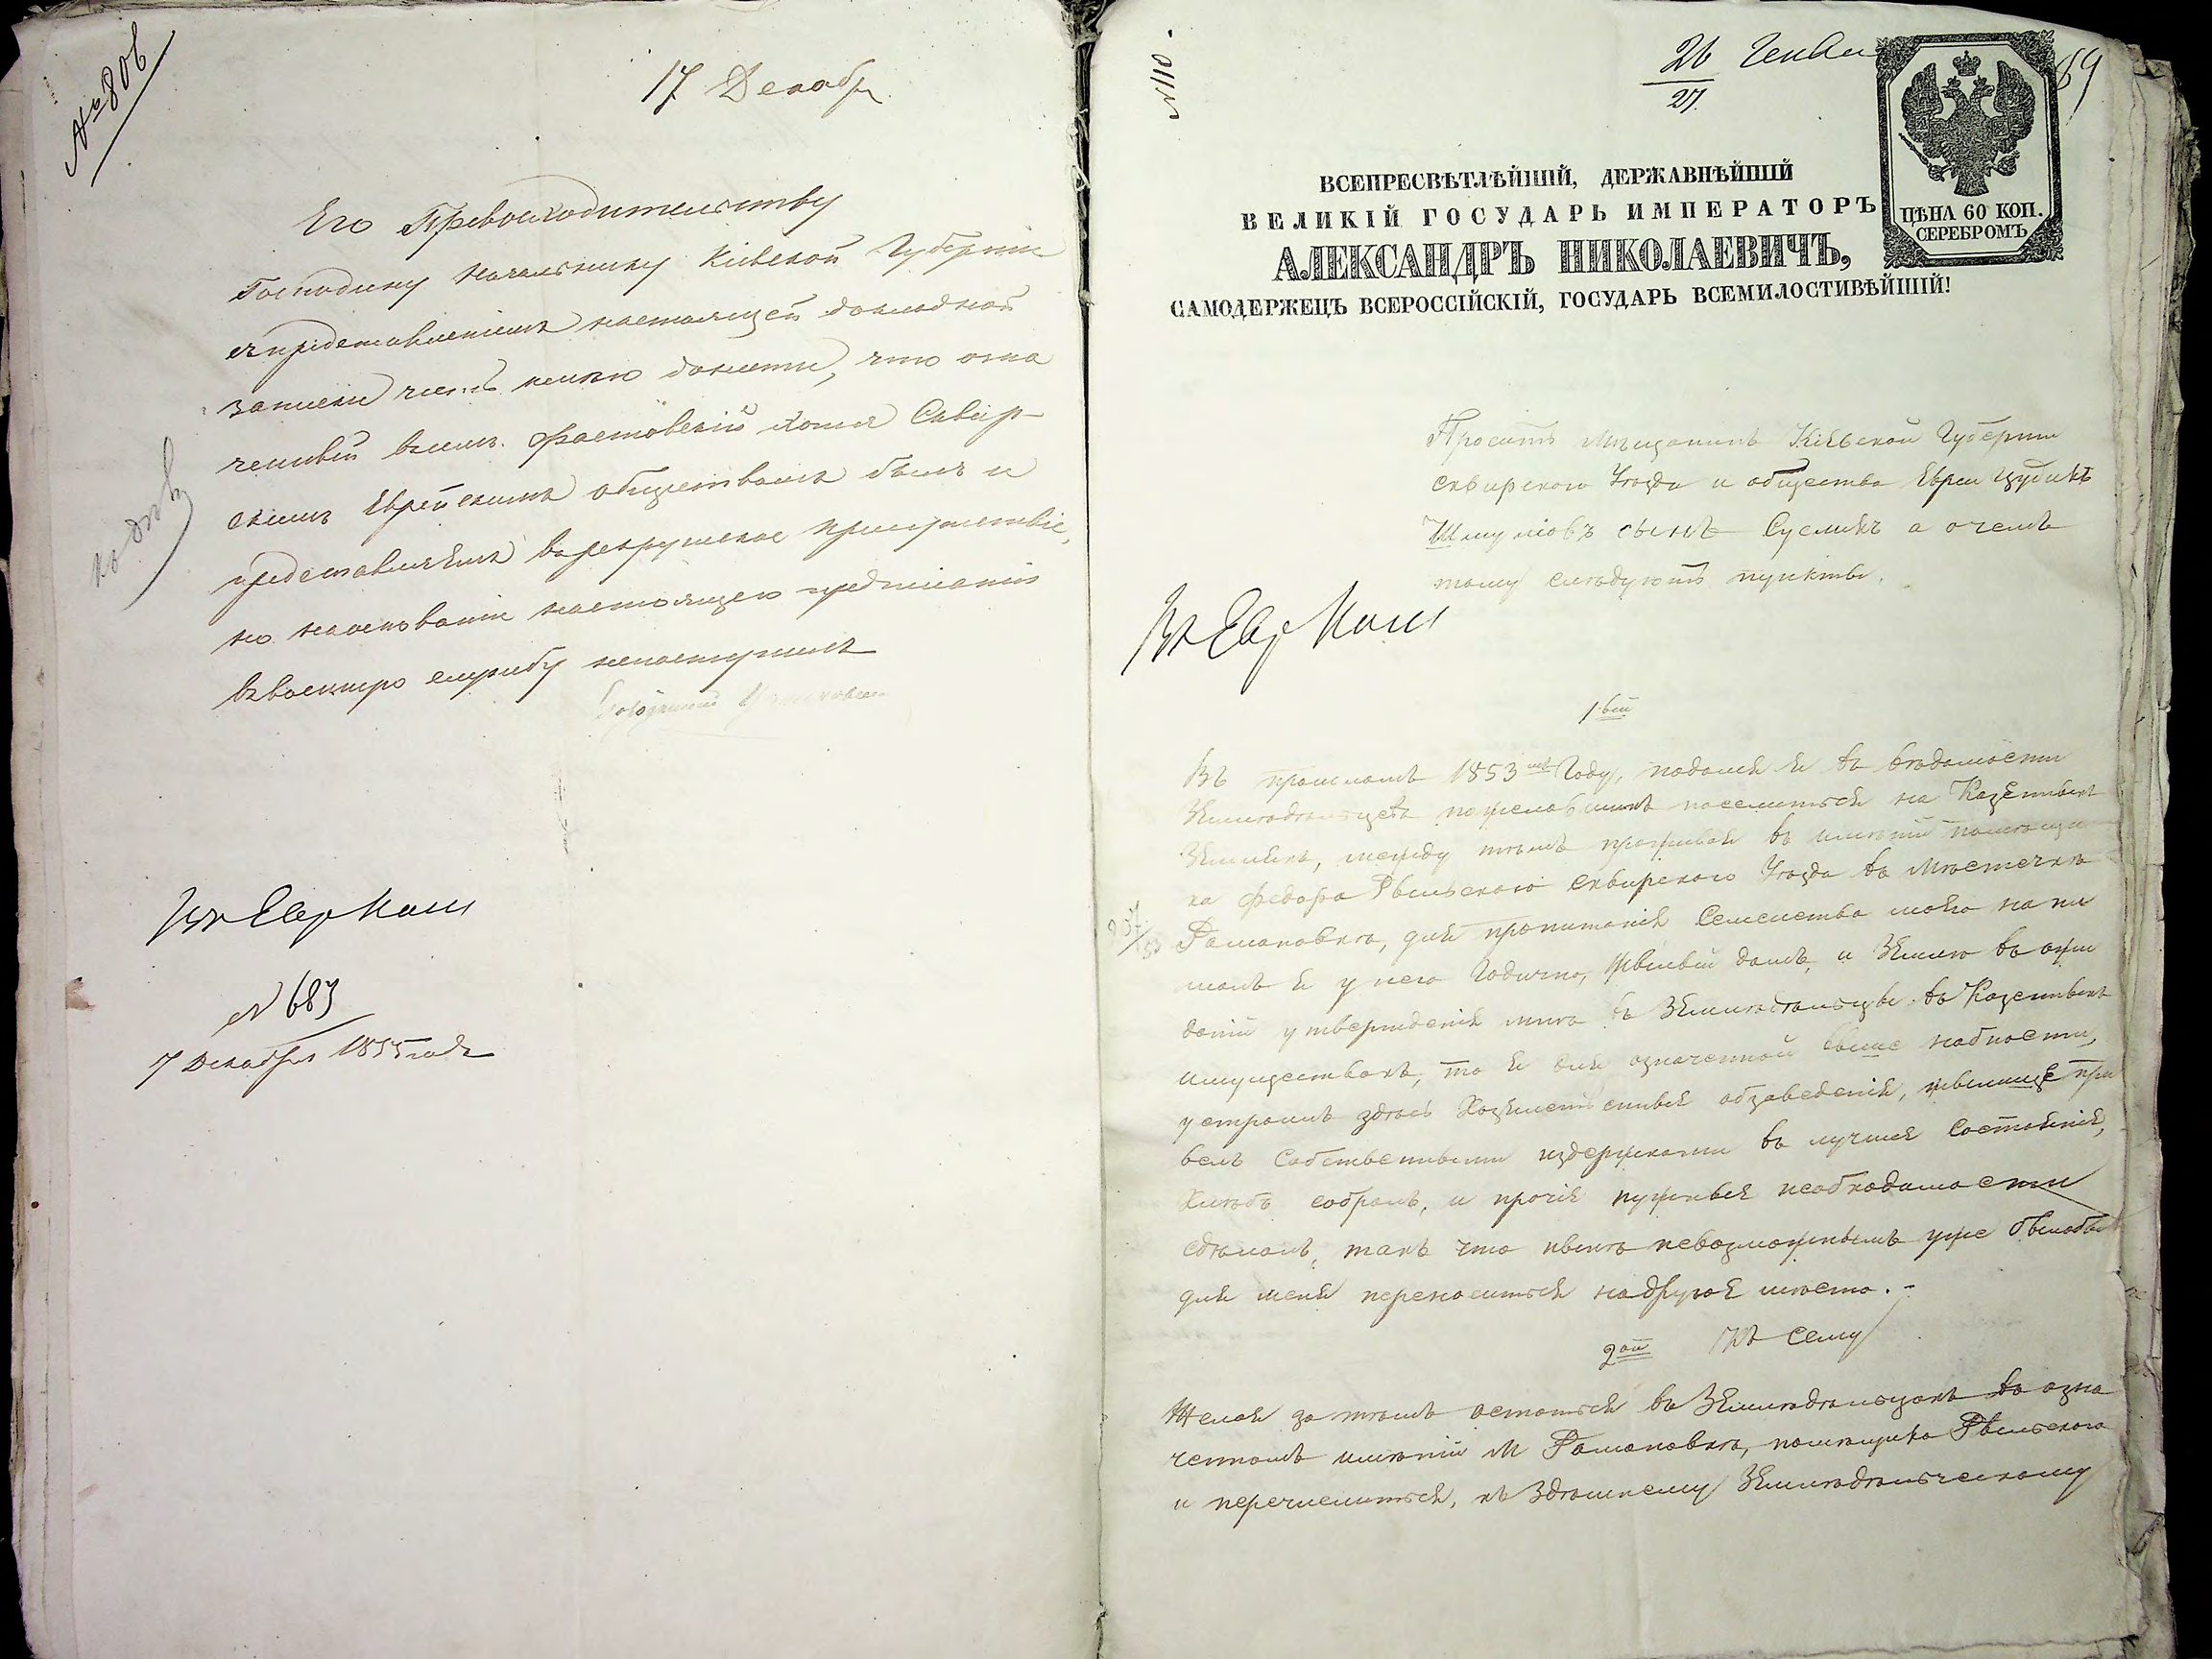 № 806
17 Декабр
Его Превосходительству
Господину Начальнику Кіевской Губерніи
съ представленіемъ настоящей докладной
записки честь имѣю донести, что озна
ченный Фастовскій хотя Сквир-
скимъ Еврейскимъ обществомъ былъ и
представляемъ въ рекрутское присутствіе,
но на основаніи настоящего предписанія
въ военную службу непоступилъ
къ дѣлу
№ 683
7 Декабря 1855 года
№ 110.
26 Генва
27.
89
ЦѢНА 60 КОП.
СЕРЕБРОМЪ
ВСЕПРЕСВѢТЛѢЙШІЙ, ДЕРЖАВНѢЙШІЙ
ВЕЛИКІЙ ГОСУДАРЬ ИМПЕРАТОРЪ
АЛЕКСАНДРЪ НИКОЛАЕВИЧЪ,
САМОДЕРЖЕЦЪ ВСЕРОССІЙСКІЙ, ГОСУДАРЬ ВСЕМИЛОСТИВѢЙШІЙ!
Проситъ Мѣщанинъ Кіевской Губерніи
Сквирского Уѣзда и общества Еврей
Шмуліовъ сынъ Сусликъ а о чемъ
тому слѣдуютъ пункты.
1-вый
Въ прошломъ 1853мъ Году, подался я въ вѣдомости
Земледѣльцевъ пожелавшихъ поселиться на Казенныхъ
Земляхъ, между тѣмъ проживая въ имѣніи помѣщи
ка Федора Рыльского Сквирского Уѣзда въ Мѣстечкѣ
Романовкѣ, для пропитанія Семейства моего нани
малъ я у него Годично, жилый домъ, и Землю въ ожи
даніи утвержденія меня въ Земледѣльцы въ Казенныхъ
имуществахъ, то я для означенной выше надобности,
устроилъ здѣсь Хозяйственные обзаведенія, жилище при
велъ Собственными издержками въ лучшее Состояніе,
Хлѣбъ собралъ, и прочіе нужные необходимости
сдѣлалъ, такъ что нынѣ невозможнымъ уже былобы
для меня переноситься надругое мѣсто. -
2ой Къ сему
Желая за тѣмъ остаться въ Земледѣльцахъ въ озна
ченномъ имѣніи М Романовкѣ, помѣщика Рыльского
и перечислиться, къ Здѣшнему Земледѣльческому